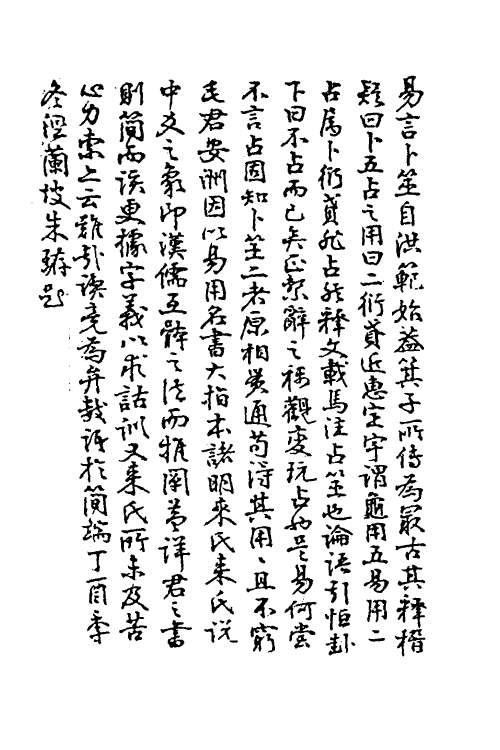 易言卜筮自洪範始蓋箕子所傳為最古其釋稽
疑曰卜五占之用曰二衍貣近惠定宇謂龜用五易用二
占屬卜衍貣非占然釋文載馬注占筮也論語引恒卦
下曰不占而已矣正繫辭之稱觀變玩占也是易何嘗
不言占固知卜筮二者原相貫通苟得其用〻且不窮
毛君安洲因以易用名書大指本諸明來氏來氏說
中爻之象即漢儒互體之法而推闡益詳君之書
則簡而該更據字義以求詁訓又來氏所未及苦
心力索云難哉讀竟為弁數語於簡端丁酉季
冬涇蘭坡朱珔題